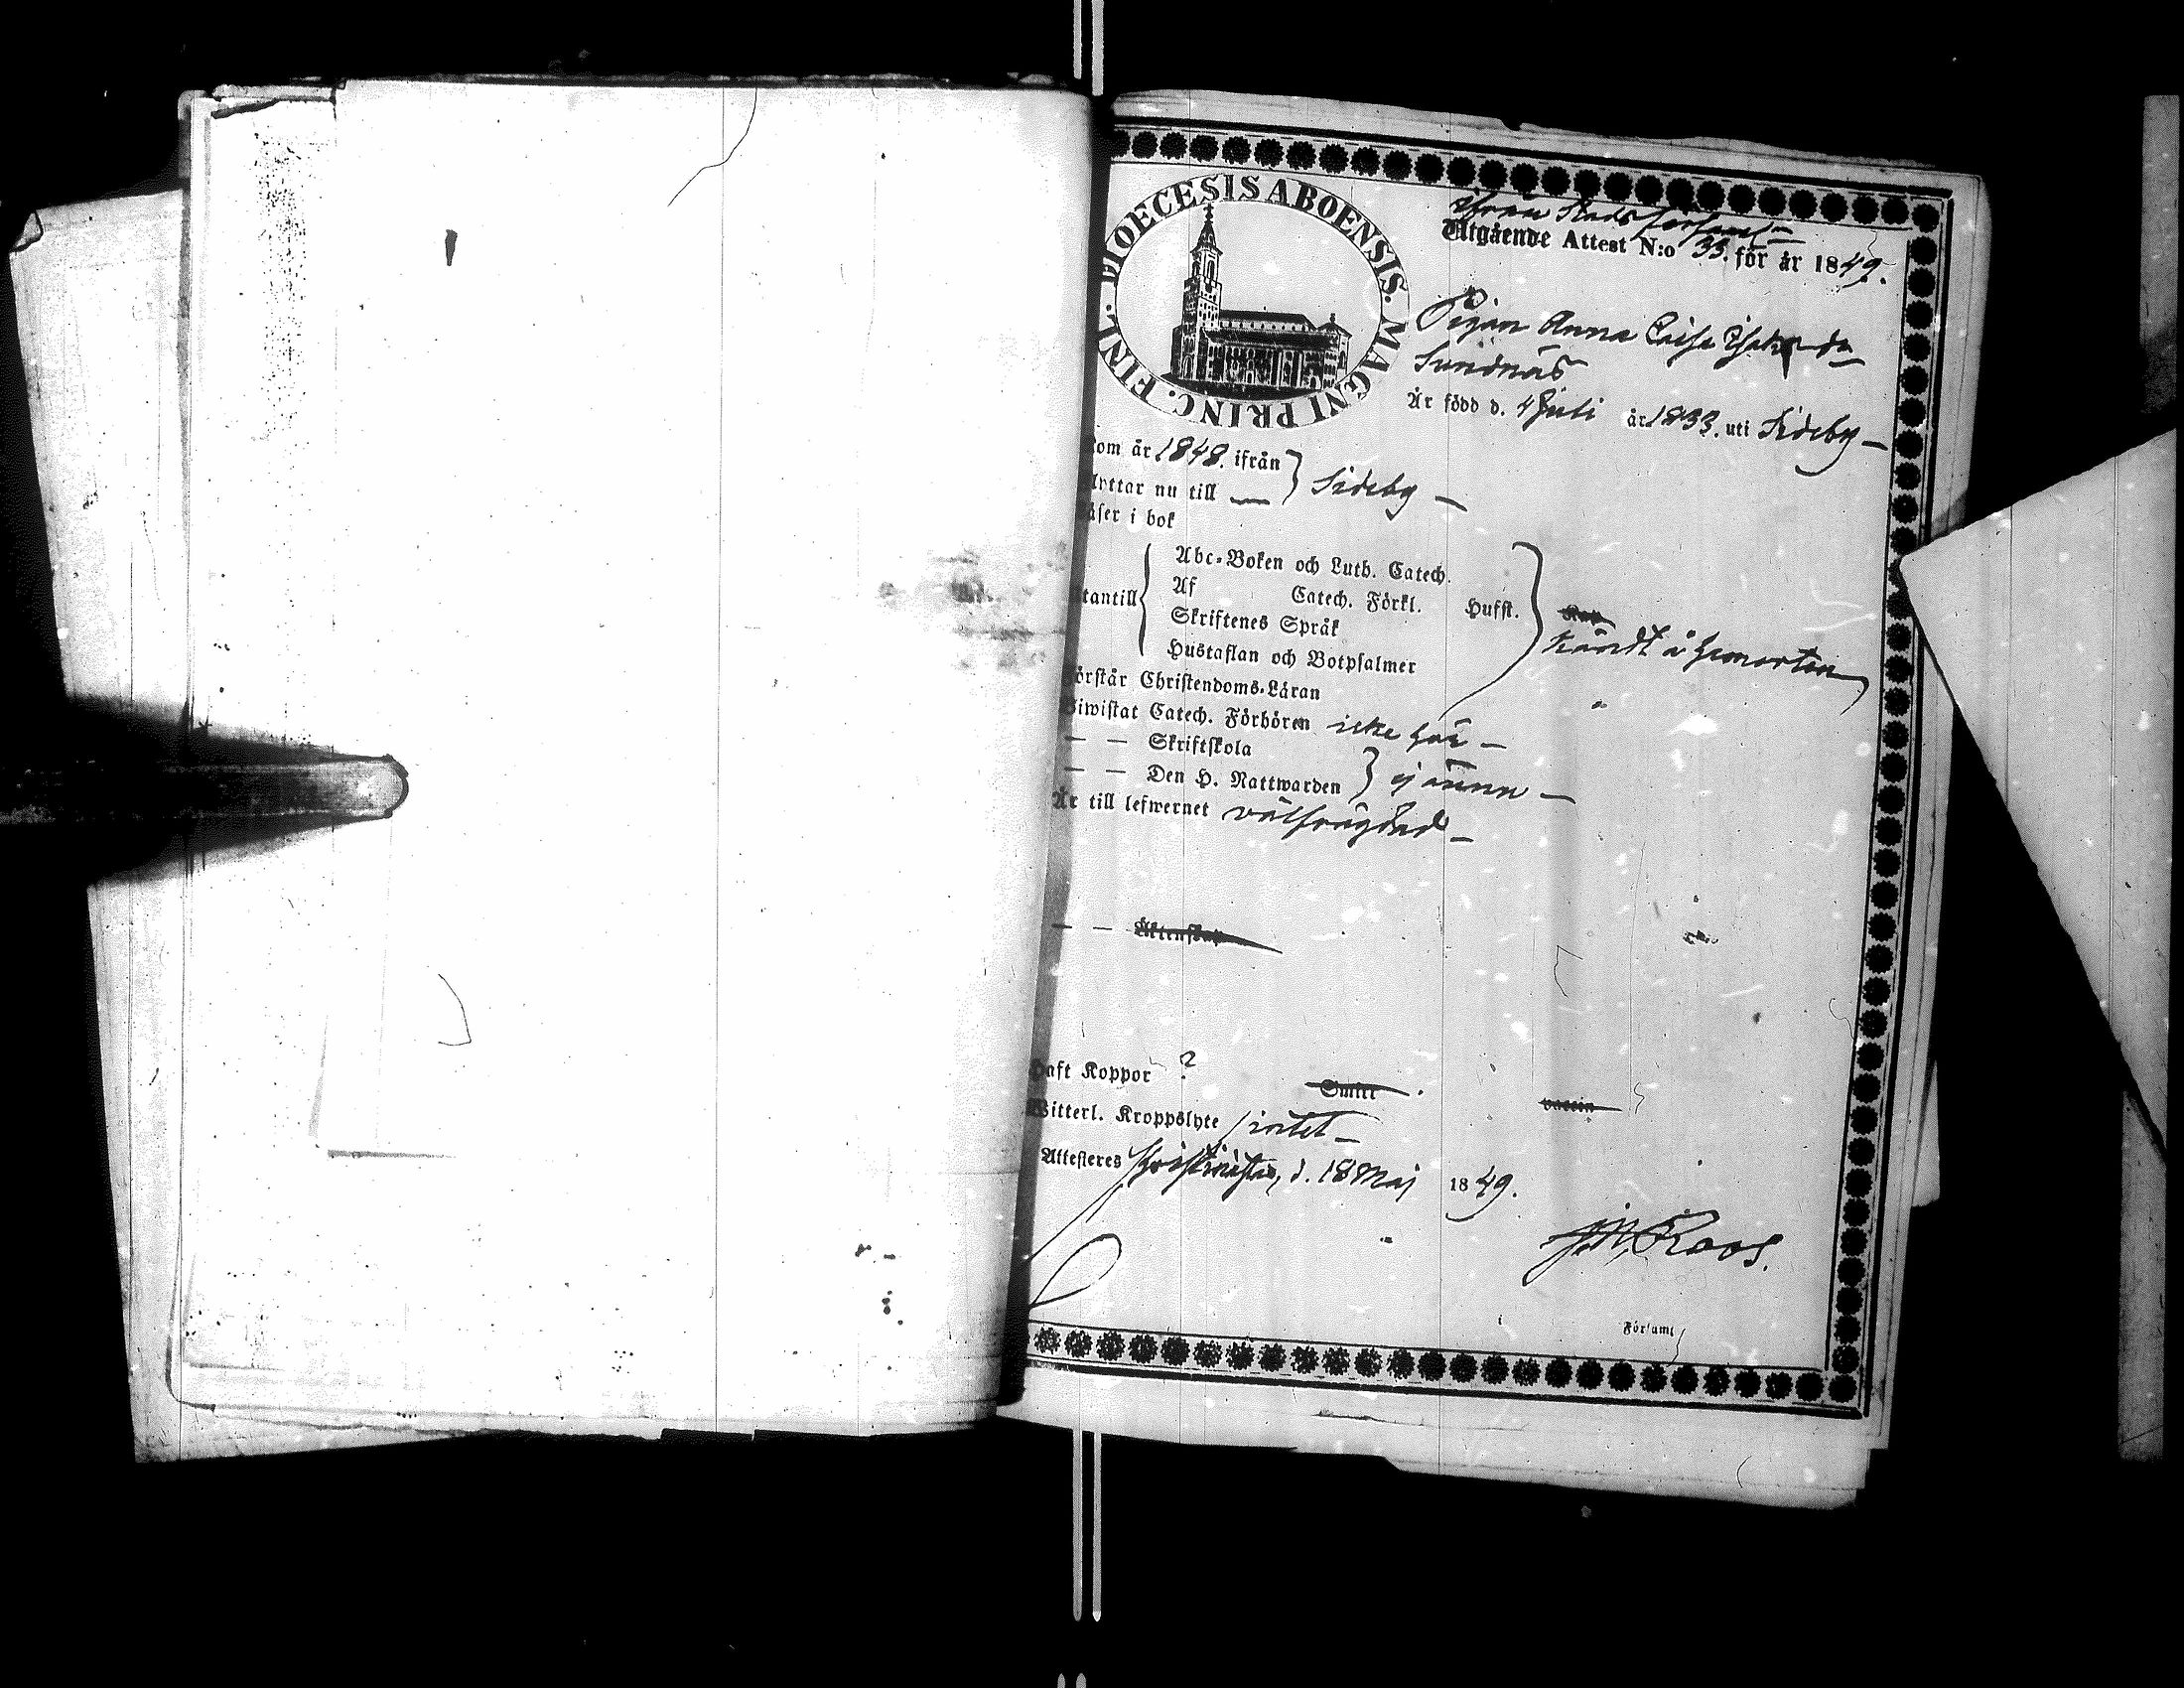 DIOECESIS ABOENSIS. MAGNI PRINC. FINL.
ifrån Stads församl
Utgående Attest N:o 33. för år 1849.
Pigan Anna Caisa
Är född d. 4 Juli år 1833. uti Sideby —
kom år 1848. ifrån
flyttar nu till — } Sideby —
Läser i bok
Abc-Boken och Luth. Catech.
Af Catech. Förkl. Husst.
utantill Skriftenes Språk
Kändt å hemorten
Hustaflan och Botpsalmer
Förstår Christendoms-Läran
Biwistat Catech. Förhören icke här —
— — Skriftskola
— — Den H. Nattwarden } ej ännu —
Är till lefwernet välfrägdad —
— — Äktenskap
Haft Koppor ? Smitt vaccin
Witterl. Kroppslyte intet —
Attesteres Christinestad, d. 18 Maj 1849.
Roos.
i Församl